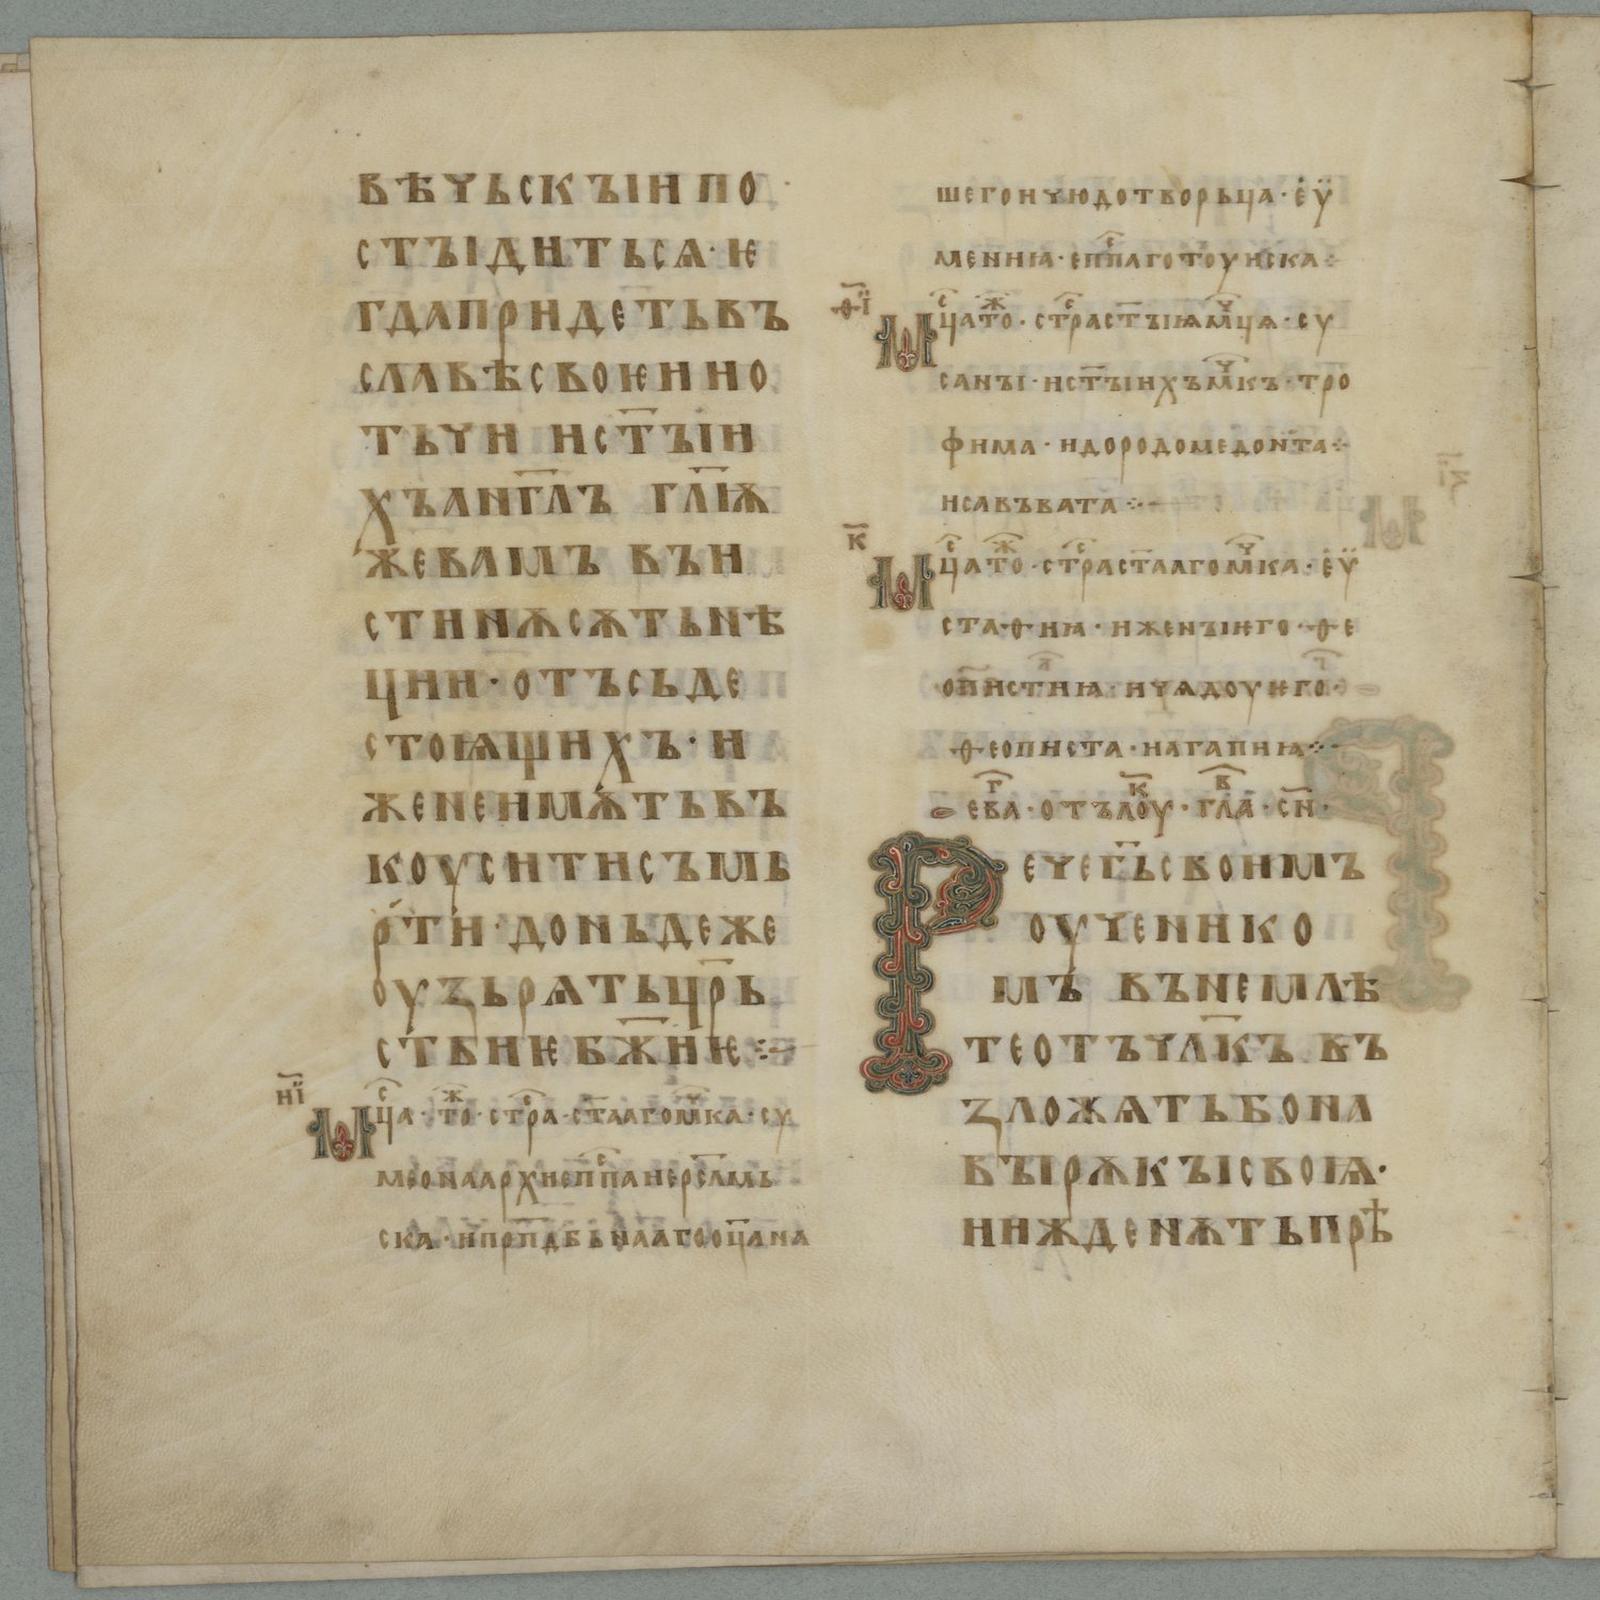 вѣчьскꙑи по
стꙑдитьсѧ· ѥ
гдапридетьвъ
славѣсвоѥино
тьчи ист҃ꙑи
хъанг҃лъ гл҃ѭ
жевамъ вън
стинѫсѫтьнѣ
ции· отъсьде
стоꙗщихъ· и
женеимѫтьвъ
коуситисъмь
рти· доньдеже
оуꙁьрѧтьцр҃ь
ствиѥбж҃иѥ⁘
н҃ı
Мⷭ҇ца· тоⷤ· стрⷭ҇а· ст҃аагомⷱ҇ка· сѵ
меонаархиепⷭ҇паиерс҃лмь
ска· ипрп҃дбьнаагооц҃ана
шегоичюдотворьца· еѵ
мениꙗ· епⷭ҇паготоуиска⁘
ѳ҃ı
Мⷭ҇цатоⷤ· стрⷭ҇аст҃ꙑѩмⷱ҇цѧ· сѵ
санꙑ· ист҃ꙑихъмⷱ҇къ· тро
фима· идородомедонта⁘
исавъвата⁘
к҃
Мⷭ҇цатоⷤ· стрⷭ҇аст҃аагомⷱ҇ка· еѵ
стаѳиꙗ· иженꙑѥго· ѳе
опистиꙗ· ичѧдоуѥго·
ѳеописта· иагапиꙗ⁘
еваⷢ· отълоуⷦ· глаⷡ· сн҃·
Речег҃ьсвоимъ
оученико
мъ вънемлѣ
теотъчл҃къ въ
ꙁложѧтьбона
вꙑрѫкꙑсвоѩ·
иижденѫтьпрѣ